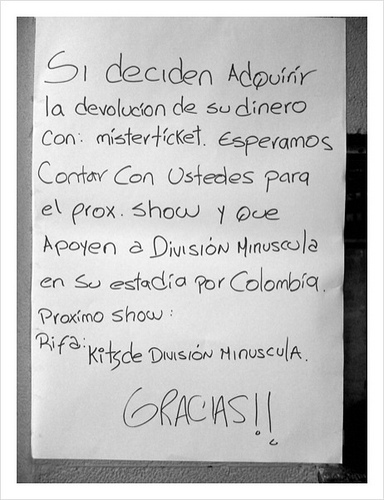 Si deciden Adquirir
la devolución de su dinero
con: misterticket. Esperamos
Contar Con Ustedes para
el prox. show y que
Apoyen a División Minuscula
en su estadía por Colombia.
Proximo show:
Rifa: Kits de División Minuscula.
GRACIAS!!